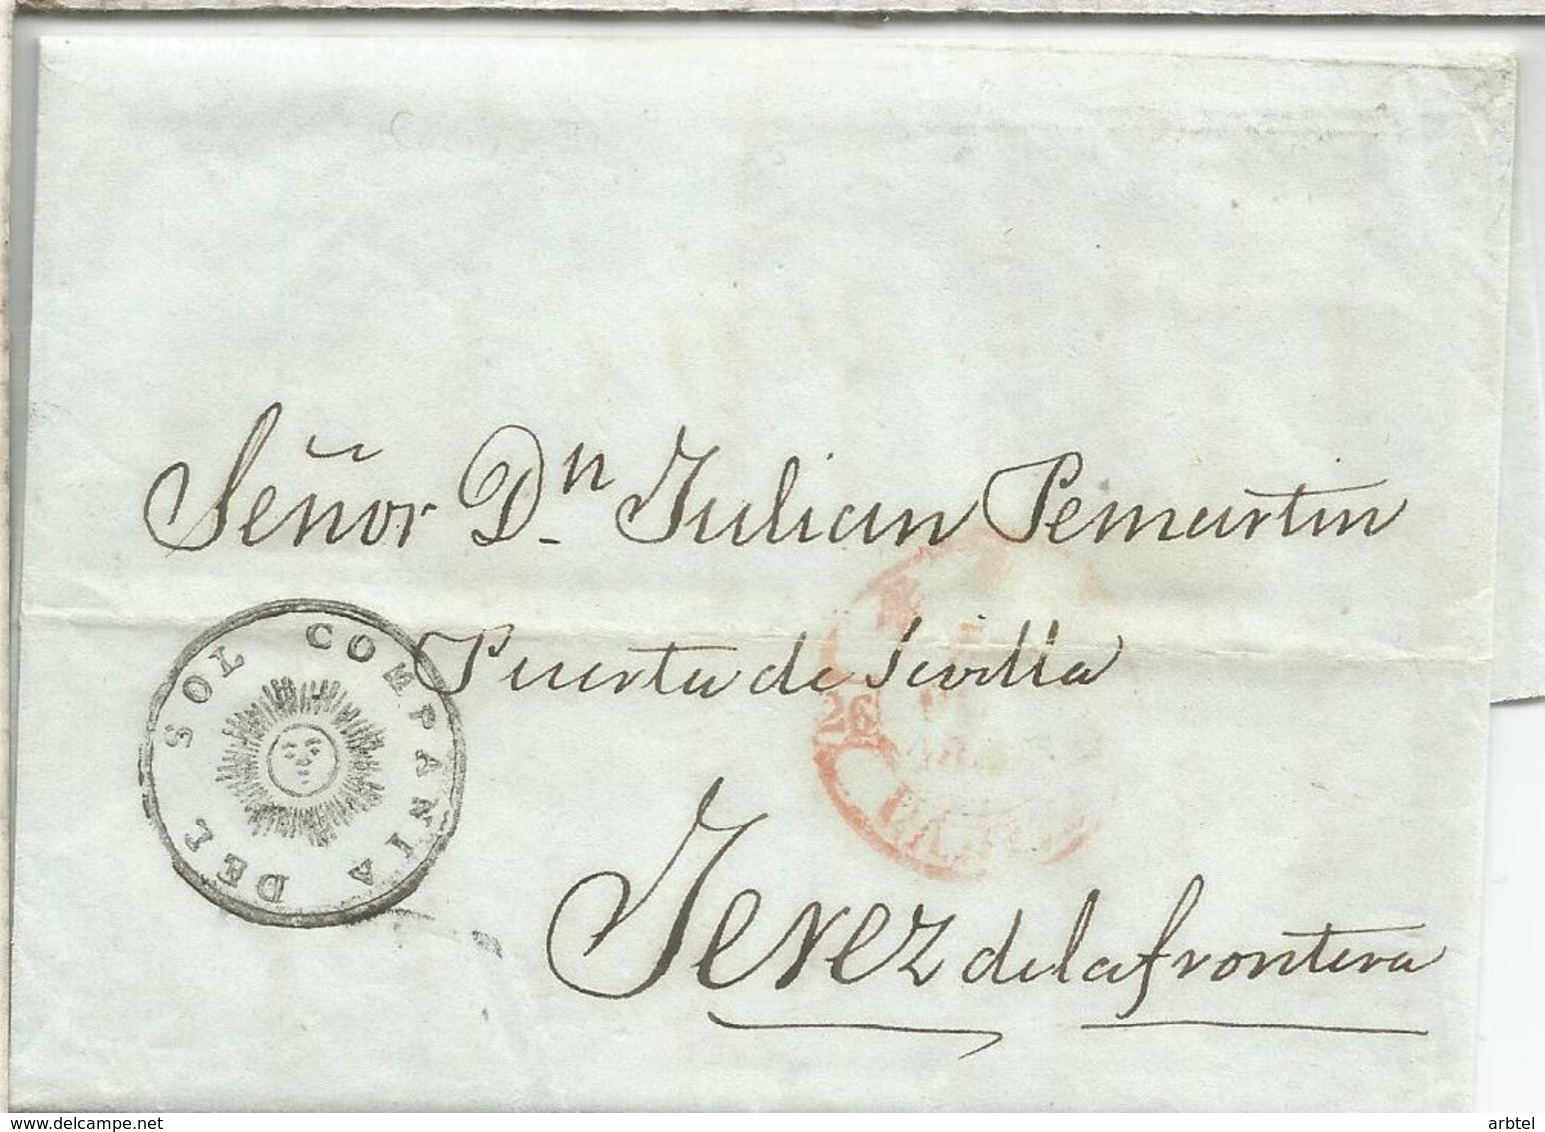 Señor Dn. Julian Pemartin
Puerta de Sevilla
COMPAÑIA DEL SOL
26
Jerez de la frontera
www.delcampe.net
arbtel